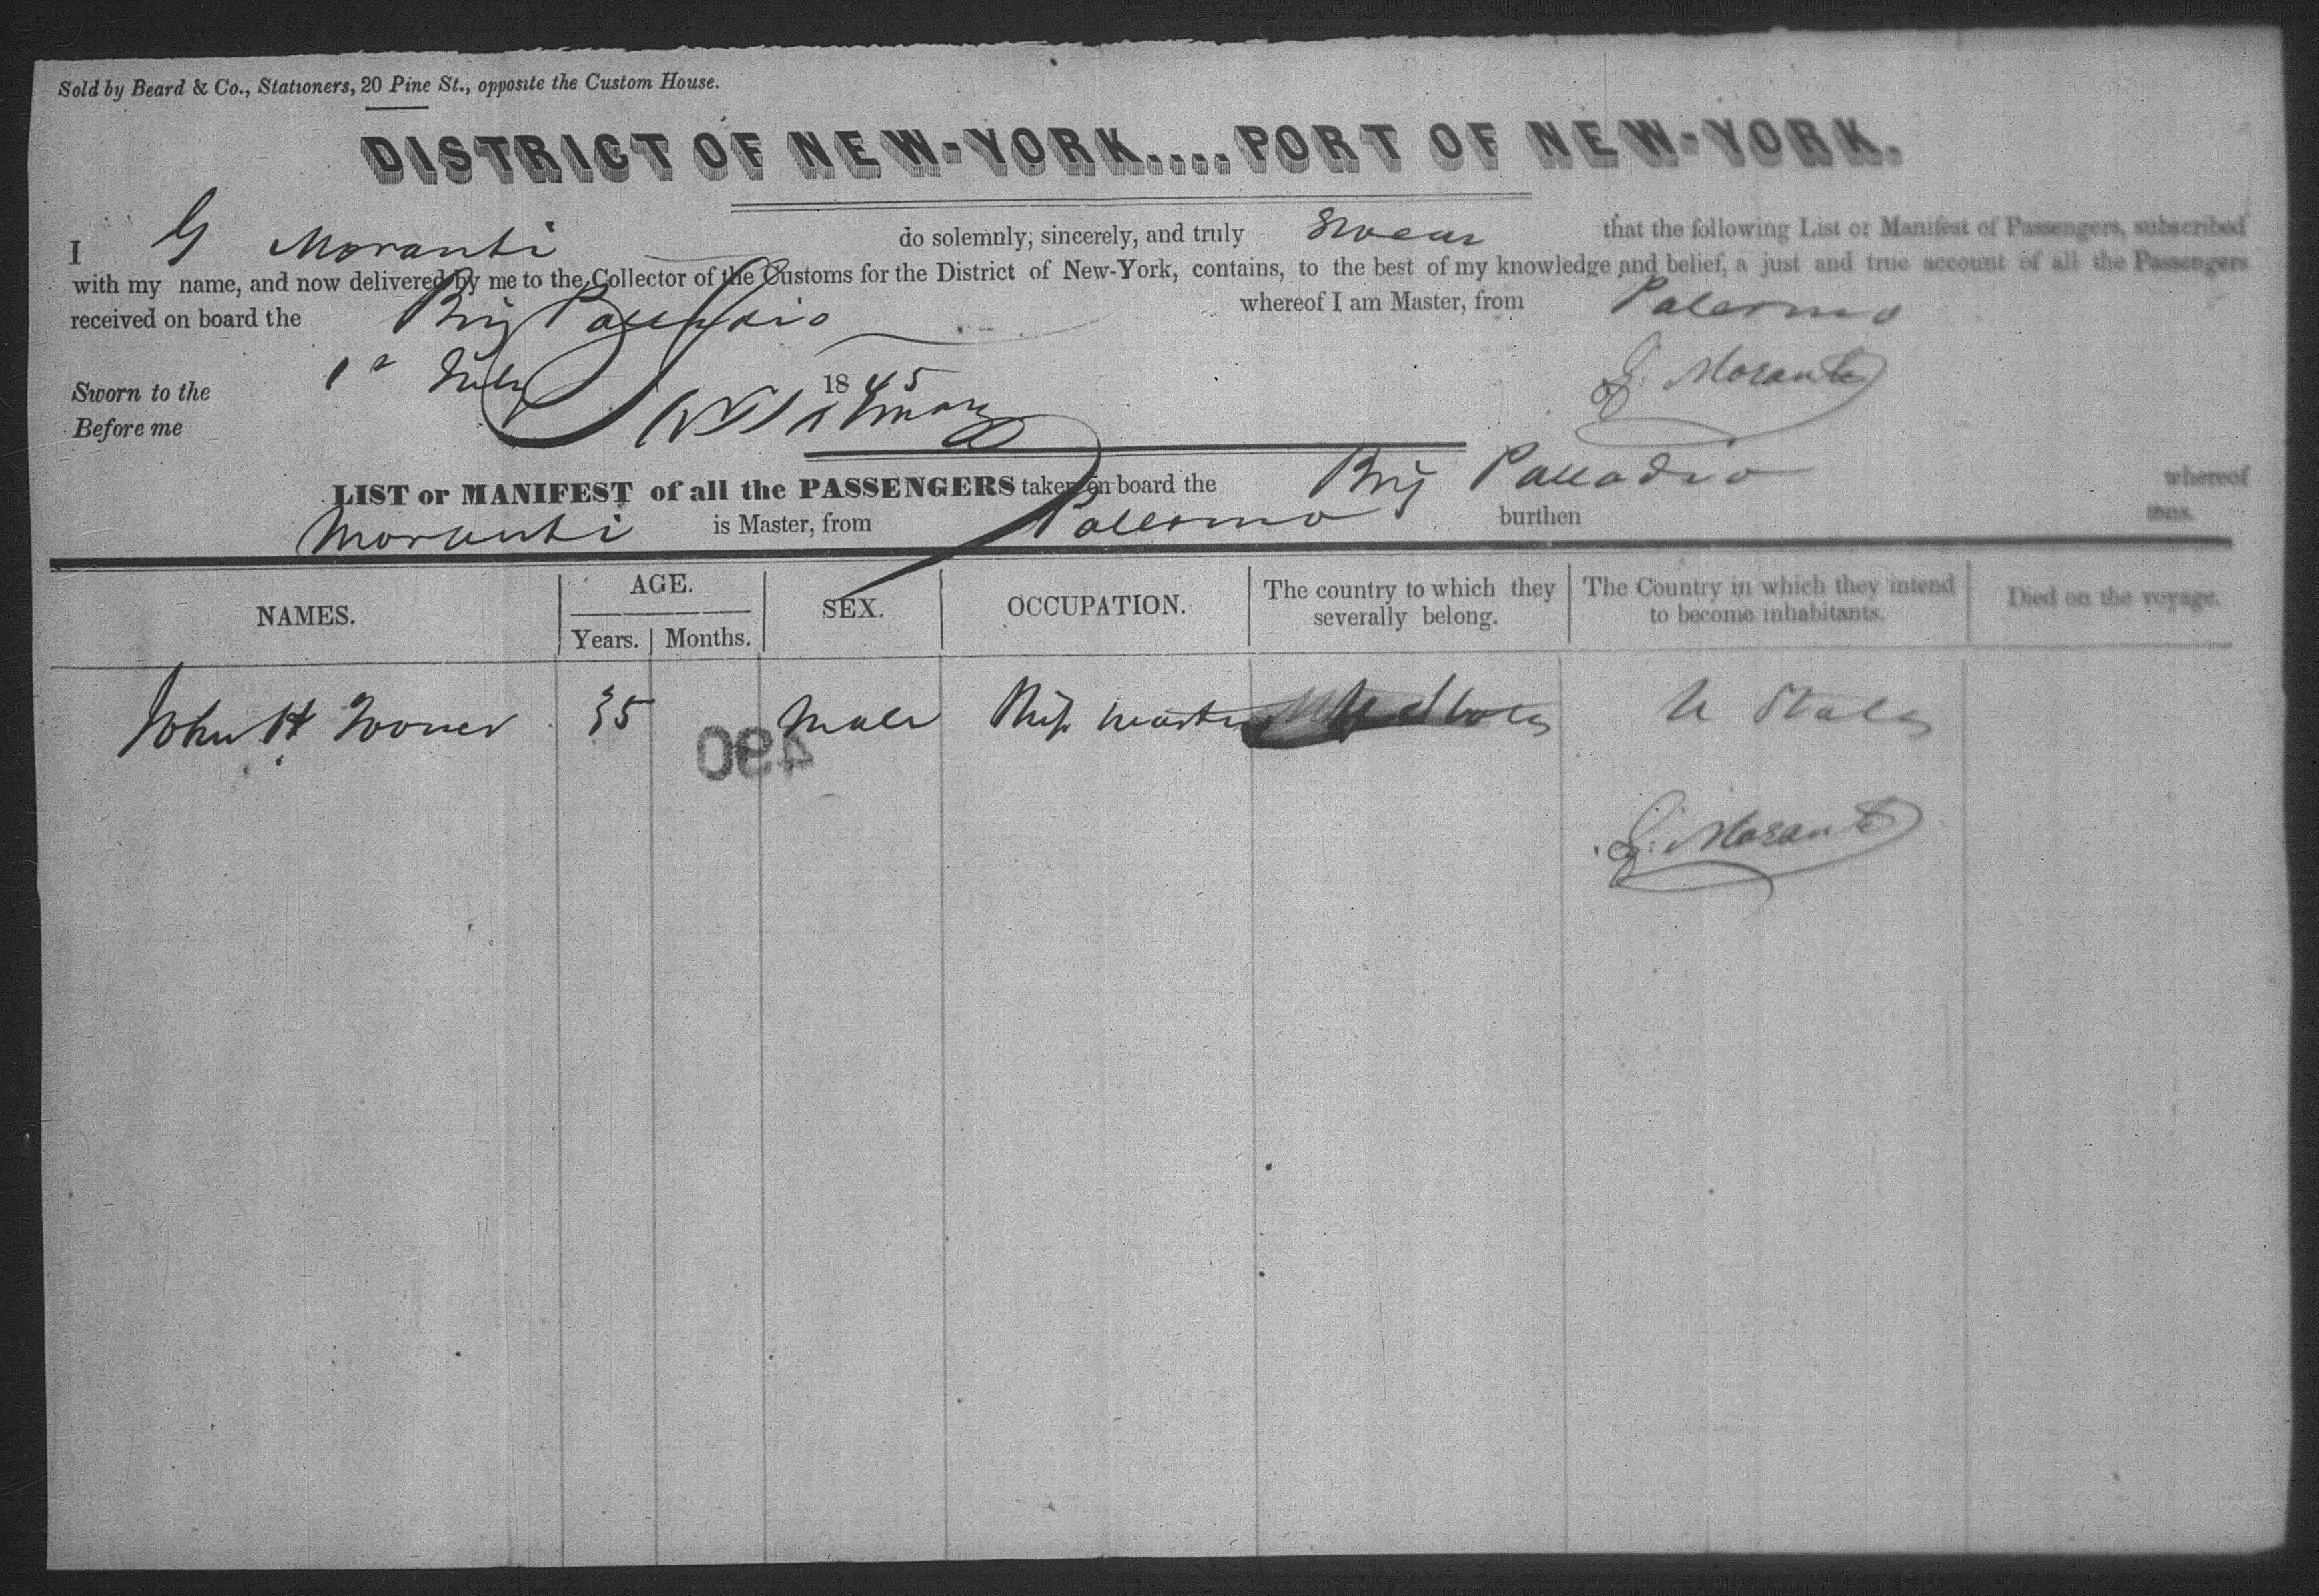 Sold by Beard & Co., Stationers, 20 Pine St., opposite the Custom House.
DISTRICT OF NEW-YORK....PORT OF NEW-YORK.
I G Moranti do solemnly, sincerely, and truly Swear that the following List or Manifest of Passengers, subscribed
with my name, and now delivered by me to the Collector of the Customs for the District of New-York, contains, to the best of my knowledge and belief, a just and true account of all the Passengers
received on board the Brig Palladio whereof I am Master, from Palermo
G. Moranti
Sworn to the 1st July 1845
Before me
LIST or MANIFEST of all the PASSENGERS taken on board the Brig Palladio whereof
Moranti is Master, from Palermo burthen tons.
NAMES. AGE. Years. Months. SEX. OCCUPATION. The country to which they severally belong. The Country in which they intend to become inhabitants. Died on the voyage.
John H 35 Male Ship master U States U States
430
G. Moranti